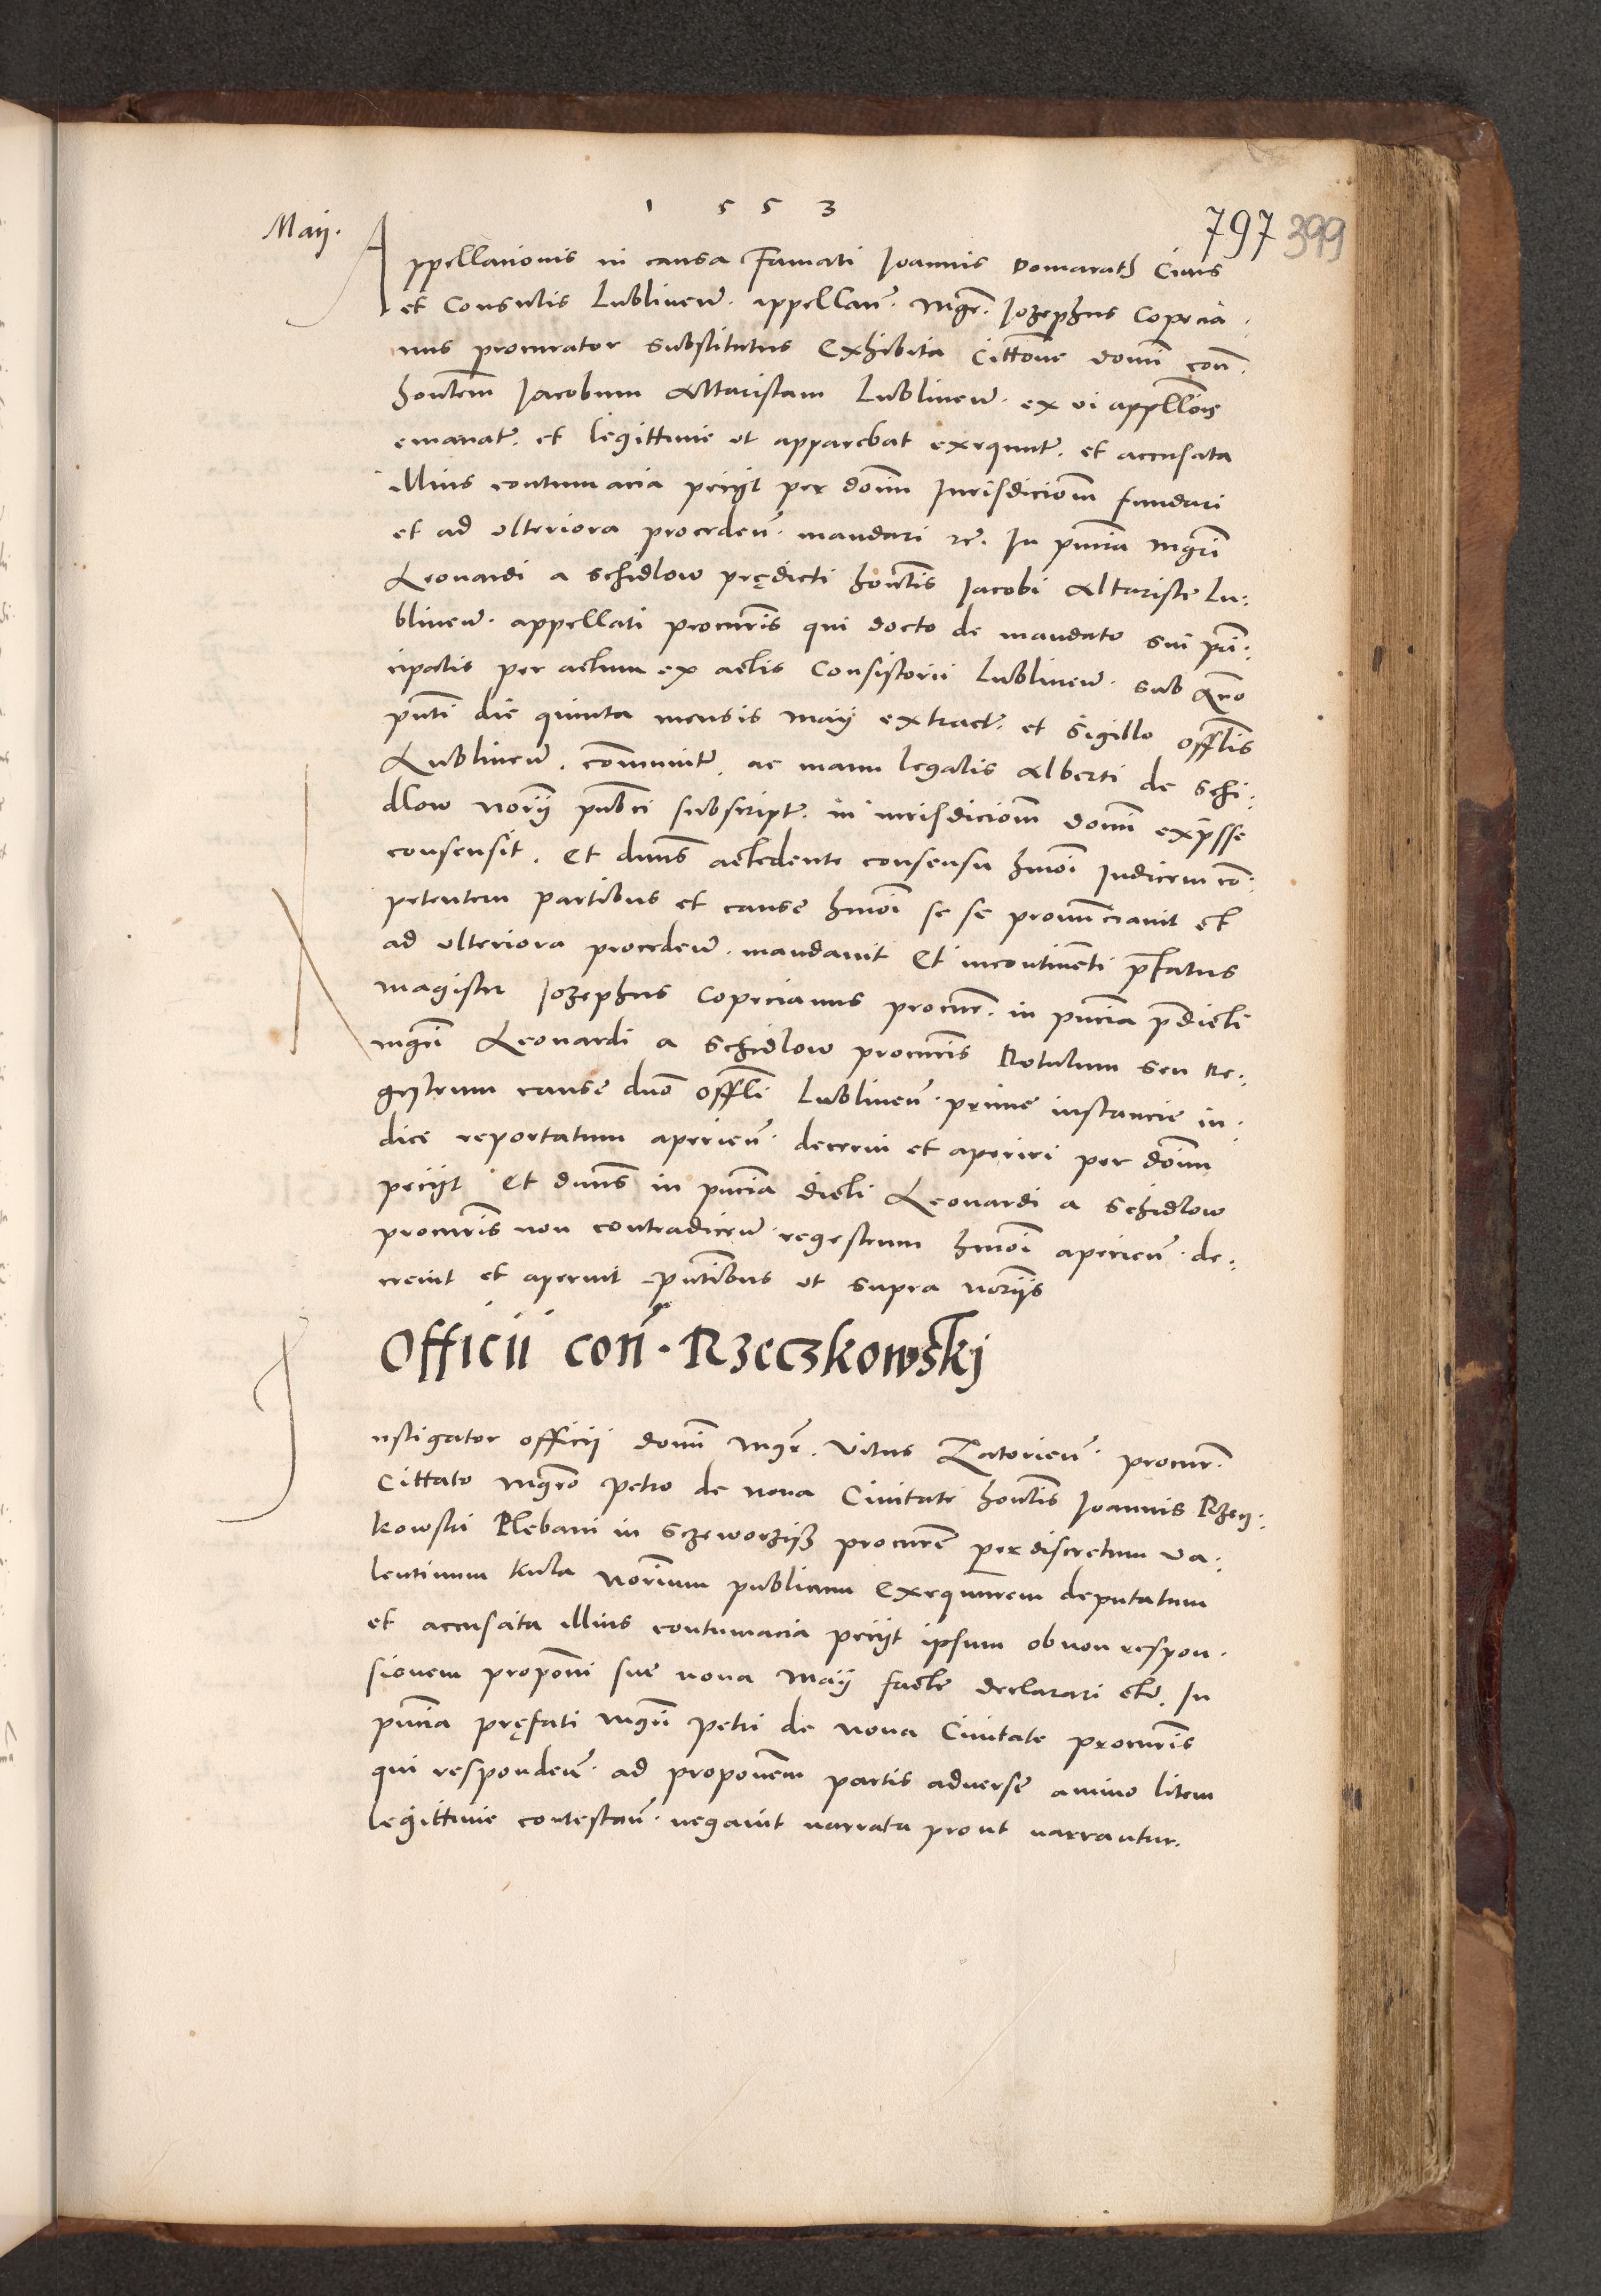 1553
797 399
Maij.
Appellationis in causa Famati Joannis Domarath Civis
et Consulis Lublinen̄. appellan̄. Mgr̄. Jozephus Coprcia:
nus procurator substitutus Exhibita Cittōne domi con̄.
honlem Jacobum Altaristam Lublinen̄. ex vi appllōis
emanat̄. et legittime vt apparebat exequut̄. et accusata
illius contumacia peciit per donm Jurisdicionem fundari
et ad vlteriora proceden̄. mandari rc̄. In pn̄cia mgri
Leonardi a Schidlow prędicti honlis Jacobi Altariste Lu:
blinen̄. appellati procuris qui docto de mandato sui prin:
cipalis per actum ex actis Consistorii Lublinen̄. sub Anno
pn̄ti die quinta mensis maij extract̄. et Sigillo offlis
Lublinen̄. communit̄. ac manu legalis Alberti de Schi:
dlow norij pub̄ci subscript̄. in iurisdicionem domi exp̄sse
consensit. Et dnus accedente consensu hmōi Judicem cō:
petentem partibus et cause hmōi se se pronunciavit et
ad vlteriora proceden̄. mandavit Et incontinenti prefatus
magister Jozephus Coprcianus procur̄. in pn̄cia p̄dicti
mgri Leonardi a Schidlow procuris Rotulum seu Re:
gestrum cause dno Offli Lublinen̄. prime instancie in:
dice reportatum aperien̄. decerni et aperiri per donm
peciit Et dnus in pn̄cia dicti Leonardi a Schidlow
procuris non contradicen̄. regestrum hmōi aperien̄. de:
crevit et aperuit pn̄tibus vt supra norijs
Officii con̄. Rzeczkowskj
Instigator officij domi Mgr̄. Vitus Zatorien̄. procur̄.
Cittato Mgro Petro de nova Civitate honlis Joannis Rzecz:
kowski Plebani in Sczeworzisz procure per discretum Va:
lentinum Kula Norium publicum Exequutorem deputatum
et accusata illius contumacia peciit ipsum ob non respon:
sionem propōni sue nona Maij facte declarari etc̄. In
pn̄cia pręfati Mgri Petri de nova Civitate procuris
qui responden̄. ad propōnem partis adverse animo litem
legittime contestan̄. negavit narrata prout narrantur.